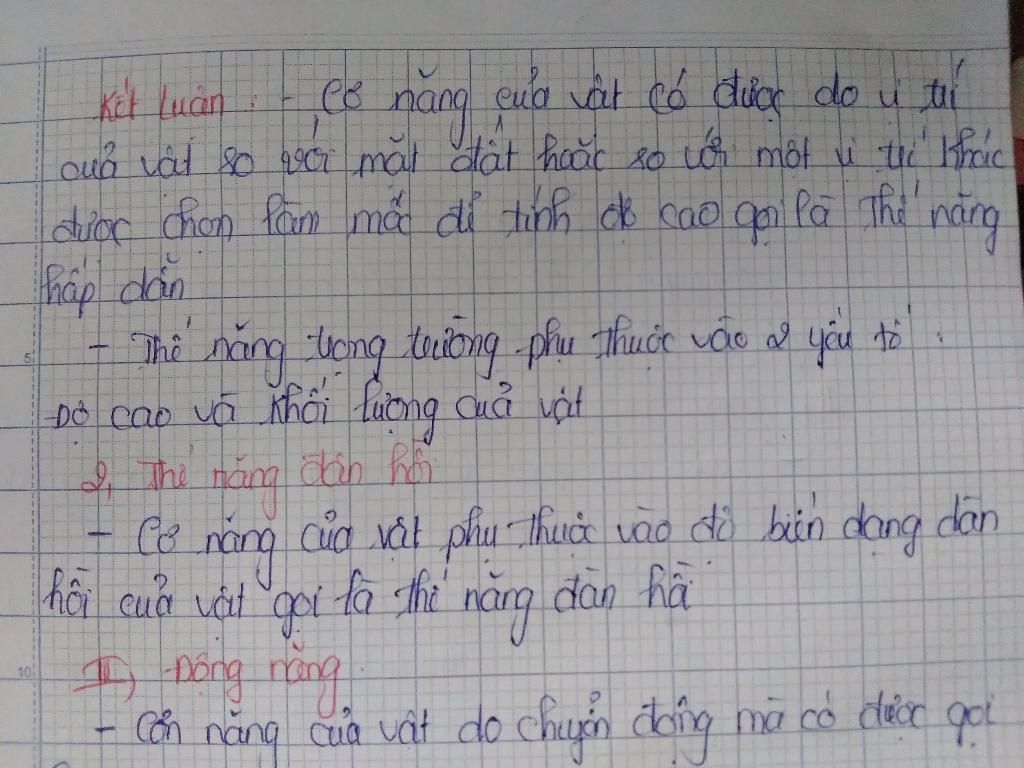 Kết luận : - Cơ năng của vật có được do vị trí
của vật so với mặt đất hoặc so với một vị trí khác
được chọn làm mốc để tính độ cao gọi là thế năng
hấp dẫn
- Thế năng trọng trường phụ thuộc vào 2 yếu tố :
Độ cao và khối lượng của vật
2, Thế năng đàn hồi
- Cơ năng của vật phụ thuộc vào độ biến dạng đàn
hồi của vật gọi là thế năng đàn hồi
III) Động năng
- Cơ năng của vật do chuyển động mà có được gọi
5
10